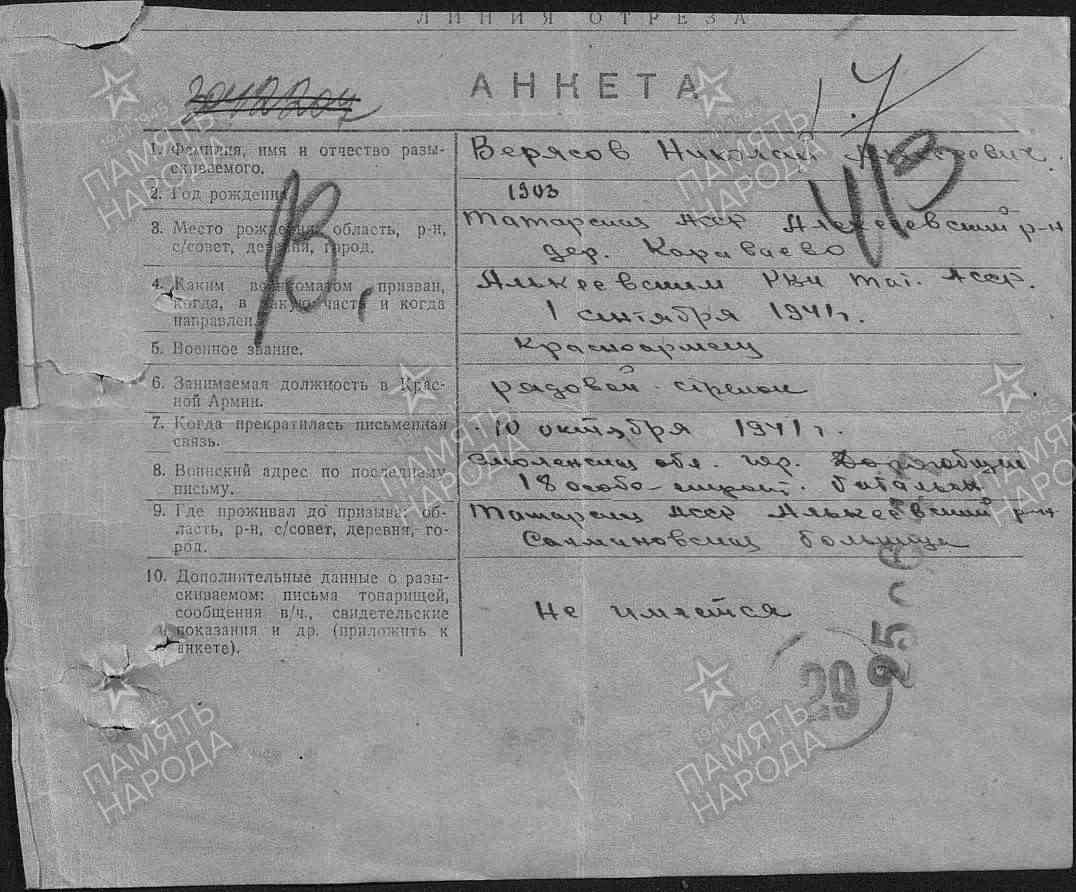 ЛИНИЯ ОТРЕЗА
АНКЕТА
1. Фамилия, имя и отчество разы-
скиваемого.
Верясов Николай
2. Год рождения
1903
3. Место рождения, область, р-н,
с/совет, деревня, город.
Татарская АССР Алексеевский р-н
дер. Караваево
4. Каким военкоматом призван,
когда, в какую часть и когда
направлен.
Алькеевским РВК Тат. АССР.
1 сентября 1941 г.
5. Военное звание.
Красноармеец
6. Занимаемая должность в Крас-
ной Армии.
рядовой - стрелок
7. Когда прекратилась письменная
связь.
10 октября 1941 г.
8. Воинский адрес по последнему
письму.
Смоленская обл. гор.
18 особо-строит. батальон
9. Где проживал до призыва: об-
ласть, р-н, с/совет, деревня, го-
род.
Татарская АССР Алькеевский р-н
больница
10. Дополнительные данные о разы-
скиваемом: письма товарищей,
сообщения в/ч., свидетельские
показания и др. (приложить к
анкете).
Не имеется
29
ПАМЯТЬ
НАРОДА
1941-1945